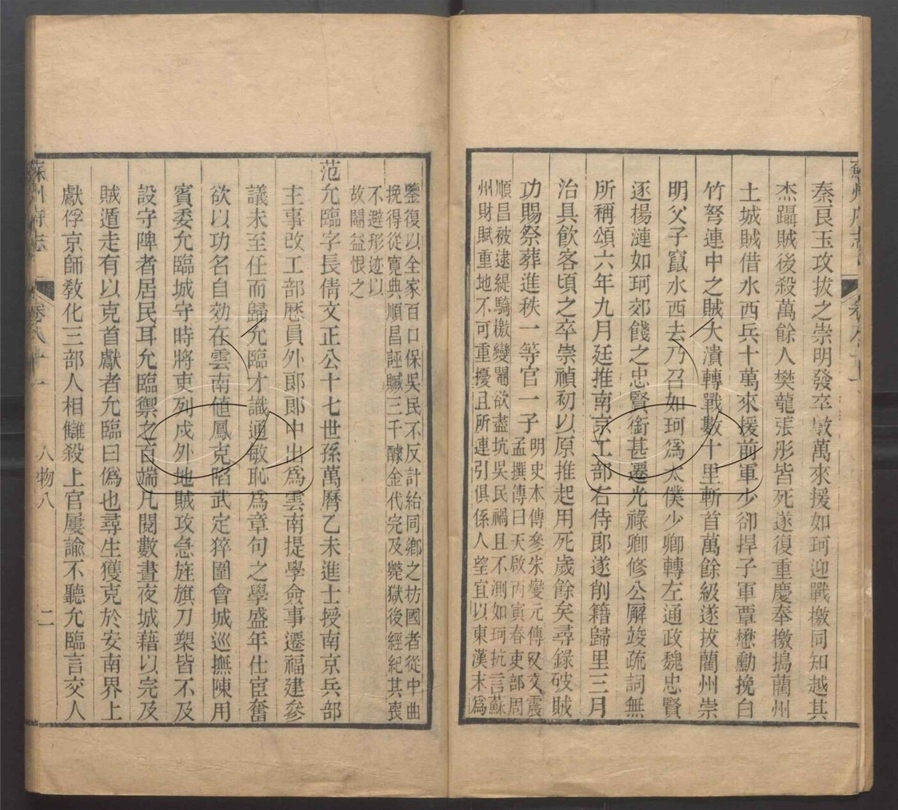 蘇州府志
卷八十一
秦良玉攻拔之崇明發卒數萬來援如珂迎戰檄同知越其
杰躡賊後殺萬餘人樊龍張彤皆死遂復重慶奉檄搗藺州
土城賊借水西兵十萬來援前軍少卻捍子軍覃懋勳挽白
竹弩連中之賊大潰轉戰數十里斬首萬餘級遂拔藺州崇
明父子竄水西去乃召如珂為太僕少卿轉左通政魏忠賢
逐楊漣如珂郊餞之忠賢銜甚遷光祿卿修公廨竣疏詞無
所稱頌六年九月廷推南京工部右侍郎遂削籍歸里三月
治具飲客頃之卒崇禎初以原推起用死歲餘矣尋錄破賊
功賜祭葬進秩一等官一子
明史本傳參朱燮元傳
孟撰傳曰天啟丙寅春吏部周
順昌被逮緹騎激變閹欲盡坑吳民禍且不測如珂抗言蘇
州財賦重地不可重擾且所連引俱係人望宜以東漢末為
鑒復以全家百口保吳民不反計給同鄉之坊國者從中曲
挽得從寬典順昌誣贓三千醵金代完及斃獄後經紀其喪
不避形迹以
故閹益恨之
范允臨字長倩文正公十七世孫萬曆乙未進士授南京兵部
主事改工部歷員外郎郎中出為雲南提學僉事遷福建參
議未至任而歸允臨才識通敏恥為章句之學盛年仕宦奮
欲以功名自効在雲南値鳳克陷武定猝圍會城巡撫陳用
賓委允臨城守時將吏列戍外地賊攻急旌旗刀槊皆不及
設守陴者居民耳允臨禦之百端凡閱數晝夜城藉以完及
賊遁走有以克首獻者允臨曰僞也尋生獲克於安南界上
獻俘京師教化三部人相讎殺上官屢諭不聽允臨言交人
蘇州府志
卷八十一
人物八
二